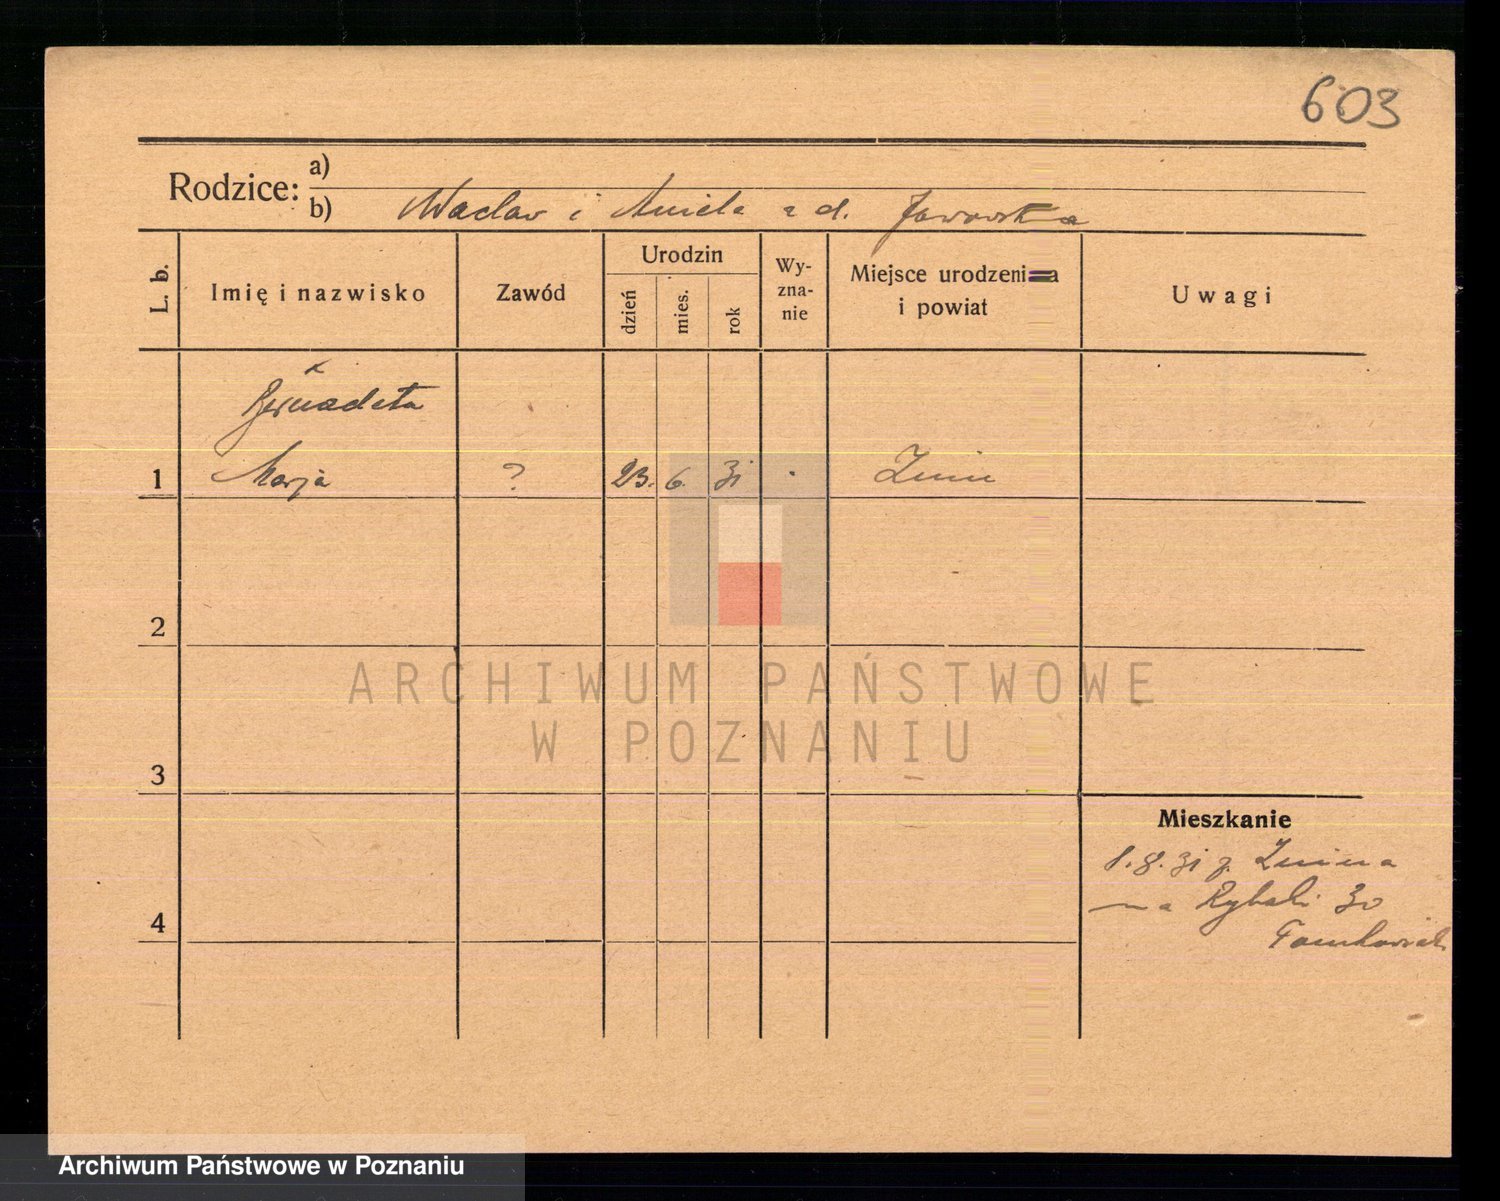 603
Rodzice:
a)
b) Wacław i Aniela z d. Jaworska
L. b.
Imię i nazwisko
Zawód
Urodzin
dzień
mies.
rok
Wy-
zna-
nie
Miejsce urodzenia
i powiat
Uwagi
x
Bernadeta
1 Marja ? 23. 6. 31 · Żnin
2
3
4
Mieszkanie
1.8.31 z Żnina
na Rybaki 30
ARCHIWUM PAŃSTWOWE
W POZNANIU
Archiwum Państwowe w Poznaniu